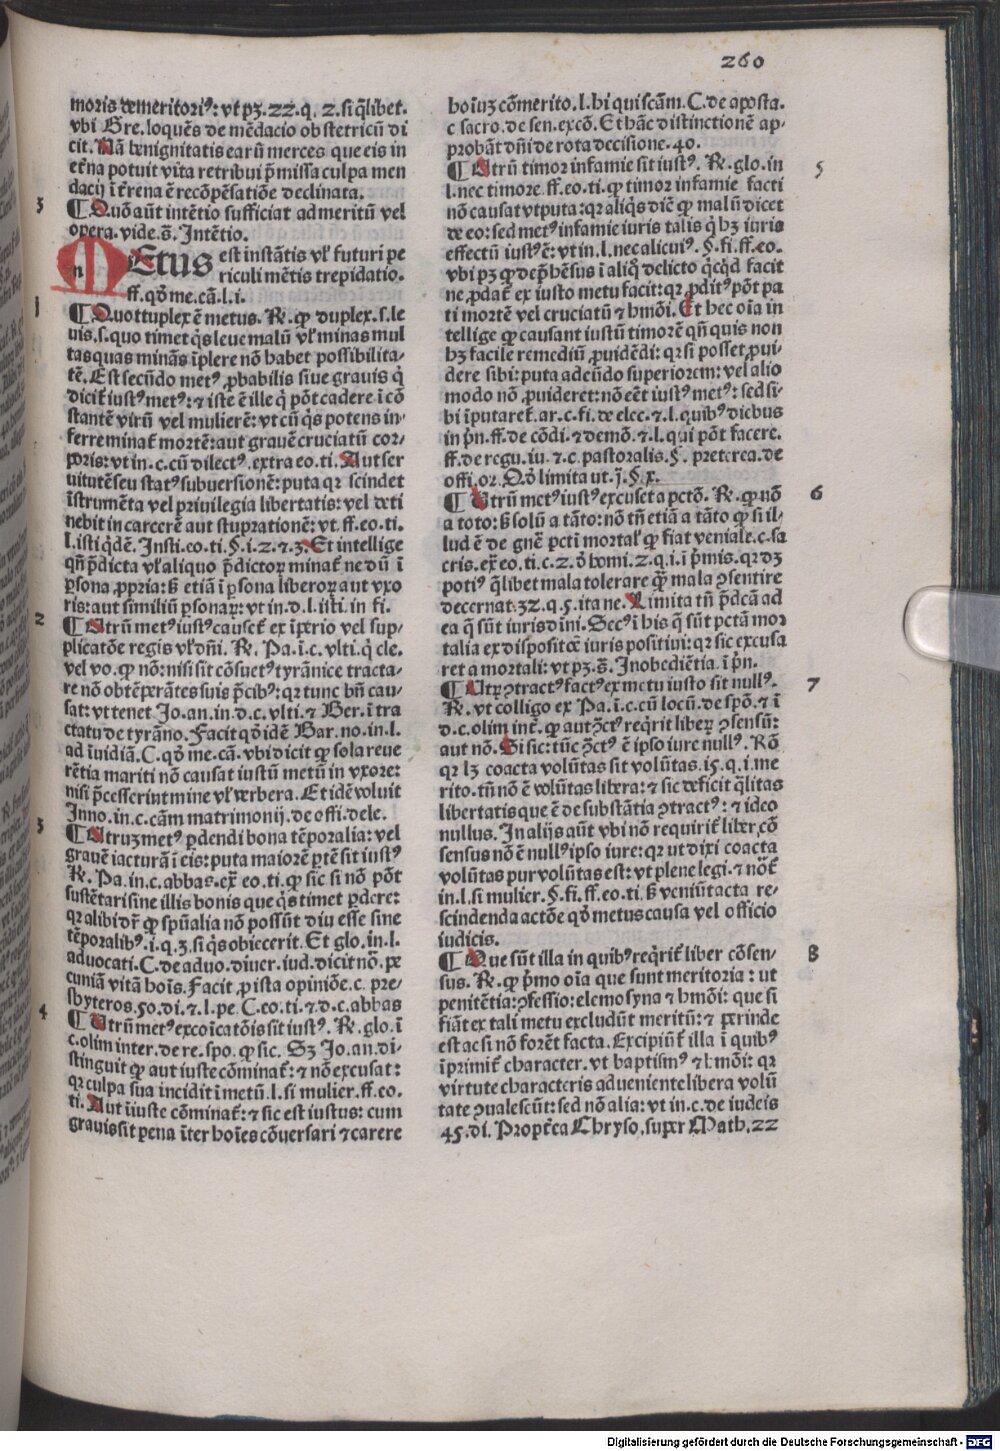 260
moris demeritoriꝰ: vt pꝫ. 22. q. 2. si q̄libet.
vbi Gre. loquēs de mēdacio obstetricū di
cit. Nā benignitatis earū merces que eis in
et̄na potuit vita retribui p̄missa culpa men
dacij ī t̄rena ē recōpēsatiōe declinata.
3
¶ Quō aūt intētio sufficiat ad meritū vel
opera. vide. s̄. Intētio.
MEtus est instātis vl̓ futuri pe
riculi mētis trepidatio.
ff. qd̓ me. cā. l. i.
1
¶ Quottuplex ē metus. R̄. ꝙ duplex. s. le
uis. s. quo timet qͥs leue malū vl̓ minas mul
tas quas minās īplere nō habet possibilita-
tē. Est secūdo metꝰ ꝓbabilis siue grauis qͥ
dicit̄ iustꝰ metꝰ: ⁊ iste ē ille qͥ pōt cadere ī cō
stantē virū vel mulierē: vt cū qͥs potens in-
ferre minat̄ mortē: aut grauē cruciatū cor-
poris: vt in. c. cū dilectꝰ. extra eo. ti. Aut ser
uitutē seu statꝰ subuersionē: puta qꝛ scindet
īstrumēta vel priuilegia libertatis: vel deti
nebit in carcerē aut stuprationē: vt. ff. eo. ti.
l. isti qͥdē. Insti. eo. ti. §. i. 2. ⁊. 3. Et intellige
qn̄ p̄dicta vl̓ aliquo p̄dictoꝝ minat̄ nedū ī
ꝑsona ꝓpria: ß etiā ī ꝑsona liberoꝝ aut vxo
ris: aut similiū ꝑsonaꝝ: vt in. d. l. isti. in fi.
2
¶ Utrū metꝰ iustꝰ causet̄ ex īperio vel sup-
plicatōe regis vl̓ dn̄i. R̄. Pa. ī. c. vlti. q̄ cle.
vel vo. ꝙ nō: nisi sit cōsuetꝰ tyrānice tracta-
re nō obtēꝑātes suis p̄cibꝰ: qꝛ tunc bn̄ cau-
sat: vt tenet Jo. an. in. d. c. vlti. ⁊ Ber. ī tra
ctatu de tyrāno. Facit qd̓ idē Bar. no. in. l.
ad īuidiā. C. qd̓ me. cā. vbi dicit ꝙ sola reue
rētia mariti nō causat iustū metū in vxore:
nisi p̄cesserint mine vl̓ verbera. Et idē voluit
Inno. in. c. cām matrimonij. de offi. dele.
3
¶ Utruꝫ metꝰ ꝑdendi bona tēporalia: vel
grauē iacturā ī eis: puta maiorē ꝑtē sit iustꝰ
R̄. Pa. in. c. abbas. ex̄ eo. ti. ꝙ sic si nō pōt
sustētari sine illis bonis que qͥs timet ꝑdere:
qꝛ alibi dr̄ ꝙ spūalia nō possūt diu esse sine
tēporalibꝰ. i. q. 3. si qͥs obiecerit. Et glo. in. l.
aduocati. C. de aduo. diuer. iud. dicit nō. pe
cuniā vitā hoīs. Facit ꝓ ista opiniōe. c. pre-
sbyteros. 50. di. ⁊. l. pe. C. eo. ti. ⁊. d. c. abbas
4
¶ Utrū metꝰ excoīcatōis sit iustꝰ. R̄. glo. ī
c. olim inter. de re. spo. ꝙ sic. Sꝫ Jo. an. di-
stinguit ꝙ aut iuste cōminat̄: ⁊ nō excusat:
qꝛ culpa sua incidit ī metū. l. si mulier. ff. eo.
ti. Aut īiuste cōminat̄: ⁊ sic est iustus: cum
grauis sit pena īter hoīes cōuersari ⁊ carere
hoīuꝫ cōmerito. l. hi qui scām. C. de aposta.
c sacro. de sen. excō. Et hāc distinctionē ap-
probāt dn̄i de rota decisione. 40.
5
¶ Utrū timor infamie sit iustꝰ. R̄. glo. in
l. nec timore. ff. eo. ti. ꝙ timor infamie facti
nō causat vt puta: qꝛ aliqͥs diē ꝙ malū dicet
de eo: sed metꝰ infamie iuris talis qͥ hꝫ iuris
effectū iustꝰ ē: vt in. l. nec alicuiꝰ. §. fi. ff. eo.
vbi pꝫ ꝙ dep̄hēsus ī aliq̄ delicto qͥcqͥd facit
ne ꝓdat̄ ex iusto metu facit: qꝛ ꝓditꝰ pōt pa
ti mortē vel cruciatū ⁊ hmōi. Et hec oīa in
tellige ꝙ causant iustū timorē qn̄ quis non
hꝫ facile remediū ꝓuidēdi: qꝛ si posset ꝓui-
dere sibi: puta adeūdo superiorem: vel alio
modo nō ꝓuideret: nō eēt iustꝰ metꝰ: sed si-
bi īputaret̄. ar. c. fi. de elec. ⁊. l. quibꝰ diebus
in pͥn. ff. de cōdi. ⁊ demō. ⁊. l. qui pōt facere.
ff. de regu. iu. ⁊. c. pastoralis. §. preterea. de
offi. or. Qd̓ limita ut. j̄. §. x.
6
¶ Utrū metꝰ iustꝰ excuset a pctō. R̄. ꝙ nō
a toto: ß solū a tāto: nō tn̄ etiā a tāto ꝙ si il-
lud ē de gn̄e pcti mortal̓ ꝙ fiat veniale. c. sa
cris. ex̄ eo. ti. c. 2. d̓ homi. 2. q. i. ī pͥmis. qꝛ dꝫ
potiꝰ q̄libet mala tolerare q̄ꝫ mala ꝯsentire
decernat. 32. q. 5. ita ne. Limita tn̄ p̄dcām ad
ea q̄ sūt iuris diuini. Secꝰ ī his q̄ sūt pctā mor
talia ex dispositōe iuris positiui: qꝛ sic excusa
ret a mortali: vt pꝫ. s̄. Inobediētia. ī pͥn.
7
¶ Utꝝ ꝯtractꝰ factꝰ ex metu iusto sit nullꝰ.
R̄. vt colligo ex Pa. ī. c. cū locū. de spō. ⁊ ī
d. c. olim int̄. ꝙ aut ꝯctꝰ reqͥrit liberꝫ ꝯsensū:
aut nō. Si sic: tūc ꝯctꝰ ē ipso iure nullꝰ. Rō
qꝛ lꝫ coacta volūtas sit volūtas. 15. q. i. me
rito. tn̄ nō ē volūtas libera: ⁊ sic deficit q̄litas
libertatis que ē de substātia ꝯtractꝰ: ⁊ ideo
nullus. In alijs aūt vbi nō requirit̄ liber cō
sensus nō ē nullꝰ ipso iure: qꝛ ut dixi coacta
volūtas pur volūtas est: vt plene legi. ⁊ nōt̄
in. l. si mulier. §. fi. ff. eo. ti. ß veniūt acta re-
scindenda actōe qd̓ metus causa vel officio
iudicis.
8
¶ Que sūt illa in quibꝰ reqͥrit̄ liber cōsen-
sus. R̄. ꝙ pͥmo oīa que sunt meritoria: ut
penitētia: ꝯfessio: elemosyna ⁊ hmōi: que si
fiāt ex tali metu excludūt meritū: ⁊ perinde
est ac si nō forēt facta. Excipiūt̄ illa ī quibꝰ
īprimit̄ character. vt baptismꝰ ⁊ hmōi: qꝛ
virtute characteris adueniente libera volū
tate ꝯualescūt: sed nō alia: vt in. c. de iudeis
45. di. Propt̄ea Chryso. super Math. 22
Digitalisierung gefördert durch die Deutsche Forschungsgemeinschaft - DFG